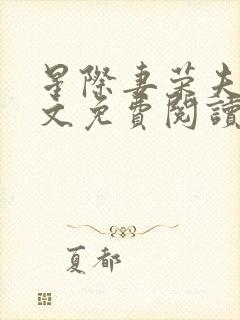 星際妻榮夫
文免費閱讀
夏都